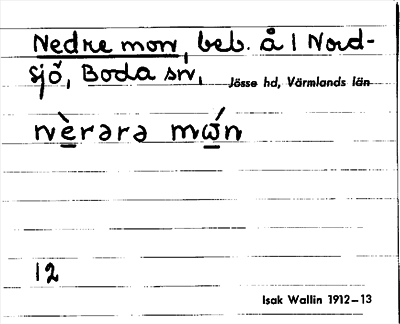 Nedre mon, beb. å i Nord-
sjö, Boda sn, Jösse hd, Värmlands län
nè̲rərə mώ̲n
12
Isak Wallin 1912–13